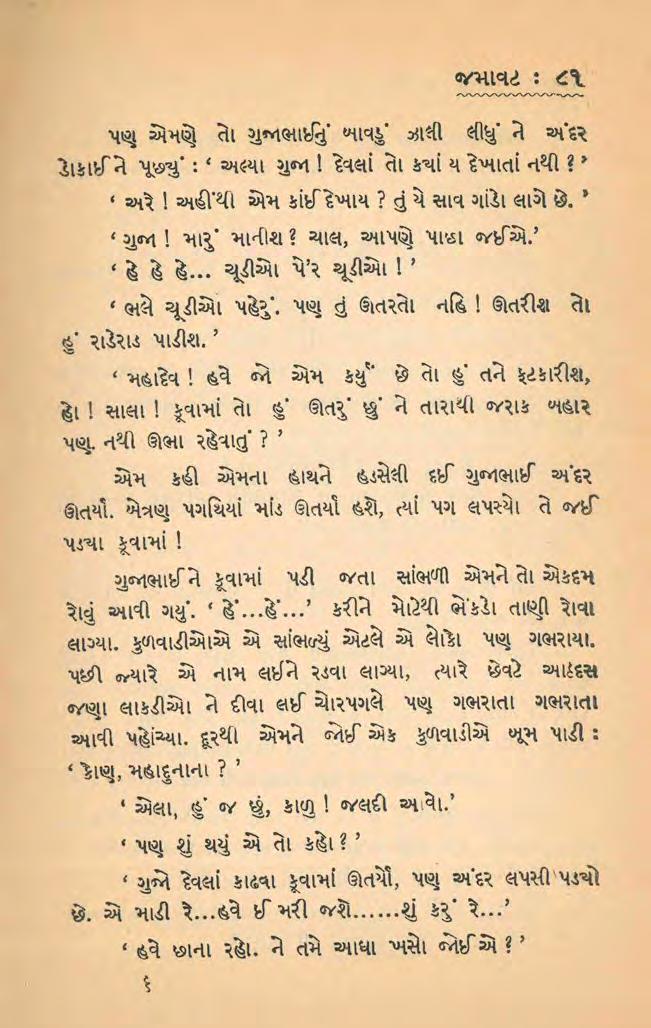 જમાવટ : ૮૧
પણ એમણે તો ગુજાભાઈનું બાવડું ઝાલી લીધું ને અંદર
ડોકાઈને પૂછ્યું : ‘ અલ્યા ગુજા ! દેવલાં તો ક્યાં ય દેખાતાં નથી ? ’
‘ અરે ! અહીંથી એમ કાંઈ દેખાય ? તું યે સાવ ગાંડો લાગે છે. ’
‘ ગુજા ! મારું માનીશ ? ચાલ, આપણે પાછા જઈએ.’
‘ હે હે હે... ચૂડીઓ પે’ર ચૂડીઓ ! ’
‘ ભલે ચૂડીઓ પહેરું. પણ તું ઊતરતો નહિ ! ઊતરીશ તો
હું રાડેરાડ પાડીશ. ’
‘ મહાદેવ ! હવે જો એમ કર્યું છે તો હું તને ફટકારીશ,
હો ! સાલા ! કૂવામાં તો હું ઊતરું છું ને તારાથી જરાક બહાર
પણ નથી ઊભા રહેવાતું ? ’
એમ કહી એમના હાથને હડસેલી દઈ ગુજાભાઈ અંદર
ઊતર્યા. બેત્રણ પગથિયાં માંડ ઊતર્યા હશે, ત્યાં પગ લપસ્યો તે જઈ
પડ્યા કૂવામાં !
ગુજાભાઈને કૂવામાં પડી જતા સાંભળી એમને તો એકદમ
રોવું આવી ગયું. ‘ હેં...હેં...’ કરીને મોટેથી ભેંકડો તાણી રોવા
લાગ્યા. કુળવાડીઓએ એ સાંભળ્યું એટલે એ લોકો પણ ગભરાયા.
પછી જ્યારે એ નામ લઈને રડવા લાગ્યા, ત્યારે છેવટે આઠદસ
જણા લાકડીઓ ને દીવા લઈ ચોરપગલે પણ ગભરાતા ગભરાતા
આવી પહોંચ્યા. દૂરથી એમને જોઈ એક કુળવાડીએ બૂમ પાડી :
‘ કોણ, મહાદુનાના ? ’
‘ એલા, હું જ છું, કાળુ ! જલદી આવો.’
‘ પણ શું થયું એ તો કહો ? ’
‘ ગુજો દેવલાં કાઢવા કૂવામાં ઊતર્યો, પણ અંદર લપસી પડ્યો
છે. એ માડી રે...હવે ઈ મરી જશે......શું કરું રે...’
‘ હવે છાના રહો. ને તમે આઘા ખસો જોઈએ ? ’
૬